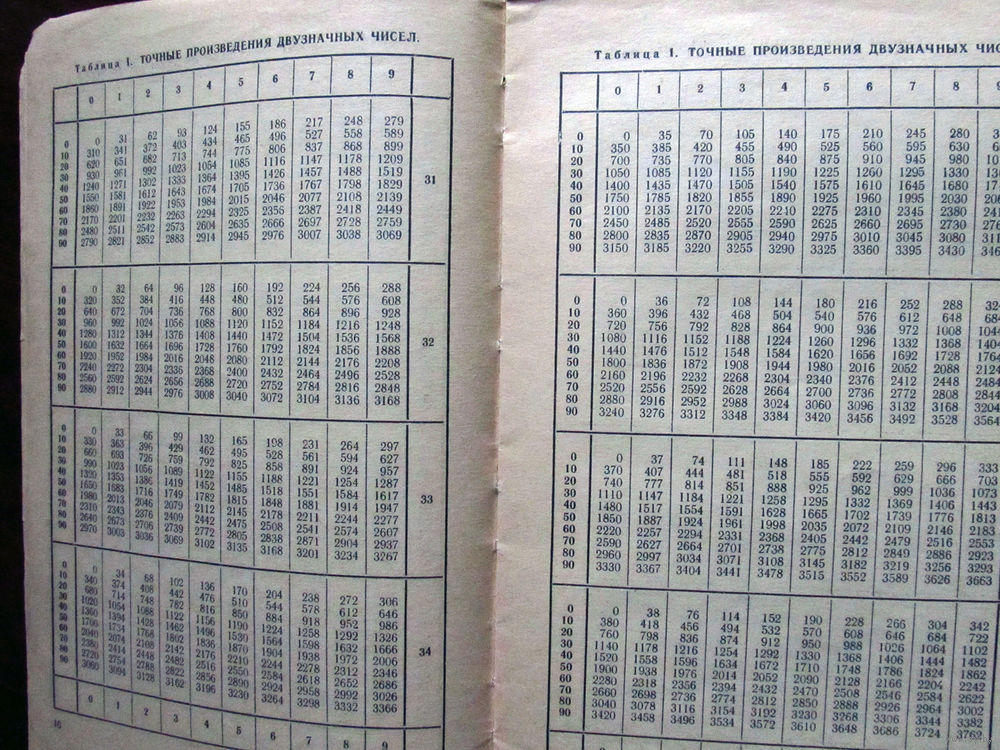 Таблица 1. ТОЧНЫЕ ПРОИЗВЕДЕНИЯ ДВУЗНАЧНЫХ ЧИСЕЛ.
0 1 2 3 4 5 6 7 8 9
0 0 31 62 93 124 155 186 217 248 279
10 310 341 372 403 434 465 496 527 558 589
20 620 651 682 713 744 775 806 837 868 899
30 930 961 992 1023 1054 1085 1116 1147 1178 1209
40 1240 1271 1302 1333 1364 1395 1426 1457 1488 1519 31
50 1550 1581 1612 1643 1674 1705 1736 1767 1798 1829
60 1860 1891 1922 1953 1984 2015 2046 2077 2108 2139
70 2170 2201 2232 2263 2294 2325 2356 2387 2418 2449
80 2480 2511 2542 2573 2604 2635 2666 2697 2728 2759
90 2790 2821 2852 2883 2914 2945 2976 3007 3038 3069
0 0 32 64 96 128 160 192 224 256 288
10 320 352 384 416 448 480 512 544 576 608
20 640 672 704 736 768 800 832 864 896 928
30 960 992 1024 1056 1088 1120 1152 1184 1216 1248
40 1280 1312 1344 1376 1408 1440 1472 1504 1536 1568 32
50 1600 1632 1664 1696 1728 1760 1792 1824 1856 1888
60 1920 1952 1984 2016 2048 2080 2112 2144 2176 2208
70 2240 2272 2304 2336 2368 2400 2432 2464 2496 2528
80 2560 2592 2624 2656 2688 2720 2752 2784 2816 2848
90 2880 2912 2944 2976 3008 3040 3072 3104 3136 3168
0 0 33 66 99 132 165 198 231 264 297
10 330 363 396 429 462 495 528 561 594 627
20 660 693 726 759 792 825 858 891 924 957
30 990 1023 1056 1089 1122 1155 1188 1221 1254 1287
40 1320 1353 1386 1419 1452 1485 1518 1551 1584 1617 33
50 1650 1683 1716 1749 1782 1815 1848 1881 1914 1947
60 1980 2013 2046 2079 2112 2145 2178 2211 2244 2277
70 2310 2343 2376 2409 2442 2475 2508 2541 2574 2607
80 2640 2673 2706 2739 2772 2805 2838 2871 2904 2937
90 2970 3003 3036 3069 3102 3135 3168 3201 3234 3267
0 0 34 68 102 136 170 204 238 272 306
10 340 374 408 442 476 510 544 578 612 646
20 680 714 748 782 816 850 884 918 952 986
30 1020 1054 1088 1122 1156 1190 1224 1258 1292 1326
40 1360 1394 1428 1462 1496 1530 1564 1598 1632 1666 34
50 1700 1734 1768 1802 1836 1870 1904 1938 1972 2006
60 2040 2074 2108 2142 2176 2210 2244 2278 2312 2346
70 2380 2414 2448 2482 2516 2550 2584 2618 2652 2686
80 2720 2754 2788 2822 2856 2890 2924 2958 2992 3026
90 3060 3094 3128 3162 3196 3230 3264 3298 3332 3366
0 1 2 3 4 5 6 7 8 9
16
Таблица 1. ТОЧНЫЕ ПРОИЗВЕДЕНИЯ ДВУЗНАЧНЫХ
0 1 2 3 4 5 6 7 8
0 0 35 70 105 140 175 210 245 280
10 350 385 420 455 490 525 560 595 630
20 700 735 770 805 840 875 910 945 980
30 1050 1085 1120 1155 1190 1225 1260 1295 1330
40 1400 1435 1470 1505 1540 1575 1610 1645 1680
50 1750 1785 1820 1855 1890 1925 1960 1995 2030
60 2100 2135 2170 2205 2240 2275 2310 2345 2380
70 2450 2485 2520 2555 2590 2625 2660 2695 2730
80 2800 2835 2870 2905 2940 2975 3010 3045 3080
90 3150 3185 3220 3255 3290 3325 3360 3395 3430
0 0 36 72 108 144 180 216 252 288
10 360 396 432 468 504 540 576 612 648
20 720 756 792 828 864 900 936 972 1008
30 1080 1116 1152 1188 1224 1260 1296 1332 1368 1404
40 1440 1476 1512 1548 1584 1620 1656 1692 1728 1764
50 1800 1836 1872 1908 1944 1980 2016 2052 2088 2124
60 2160 2196 2232 2268 2304 2340 2376 2412 2448 2484
70 2520 2556 2592 2628 2664 2700 2736 2772 2808 2844
80 2880 2916 2952 2988 3024 3060 3096 3132 3168 3204
90 3240 3276 3312 3348 3384 3420 3456 3492 3528 3564
0 0 37 74 111 148 185 222 259 296 333
10 370 407 444 481 518 555 592 629 666 703
20 740 777 814 851 888 925 962 999 1036 1073
30 1110 1147 1184 1221 1258 1295 1332 1369 1406 1443
40 1480 1517 1554 1591 1628 1665 1702 1739 1776 1813
50 1850 1887 1924 1961 1998 2035 2072 2109 2146 2183
60 2220 2257 2294 2331 2368 2405 2442 2479 2516 2553
70 2590 2627 2664 2701 2738 2775 2812 2849 2886 2923
80 2960 2997 3034 3071 3108 3145 3182 3219 3256 3293
90 3330 3367 3404 3441 3478 3515 3552 3589 3626 3663
0 0 38 76 114 152 190 228 266 304 342
10 380 418 456 494 532 570 608 646 684 722
20 760 798 836 874 912 950 988 1026 1064 1102
30 1140 1178 1216 1254 1292 1330 1368 1406 1444 1482
40 1520 1558 1596 1634 1672 1710 1748 1786 1824 1862
50 1900 1938 1976 2014 2052 2090 2128 2166 2204 2242
60 2280 2318 2356 2394 2432 2470 2508 2546 2584 2622
70 2660 2698 2736 2774 2812 2850 2888 2926 2964 3002
80 3040 3078 3116 3154 3192 3230 3268 3306 3344 3382
90 3420 3458 3496 3534 3572 3610 3648 3686 3724 3762